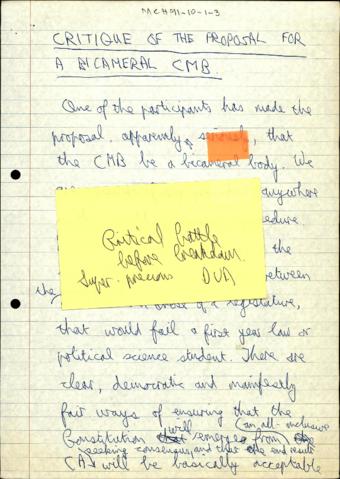 MCH91-10-1-3
CRITIQUE OF THE PROPOSAL FOR
A BICAMERAL CMB.
One of the participants has made the
proposal, apparently, that
the CMB be a bicameral body. We
anywhere
the
Critical battle
before breakdown.
Super precious DUA
between
the of a legislature,
that would fail a first year law or
political science student. There are
clear, democratic and manifestly
fair ways of ensuring that the
will (an all-inclusive
Constitution emerges from
seeking consensus, and that the end result
will be basically acceptable